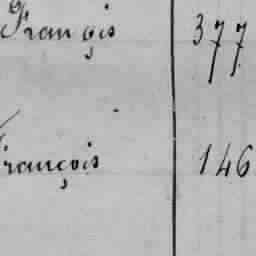 Français 377
François 146